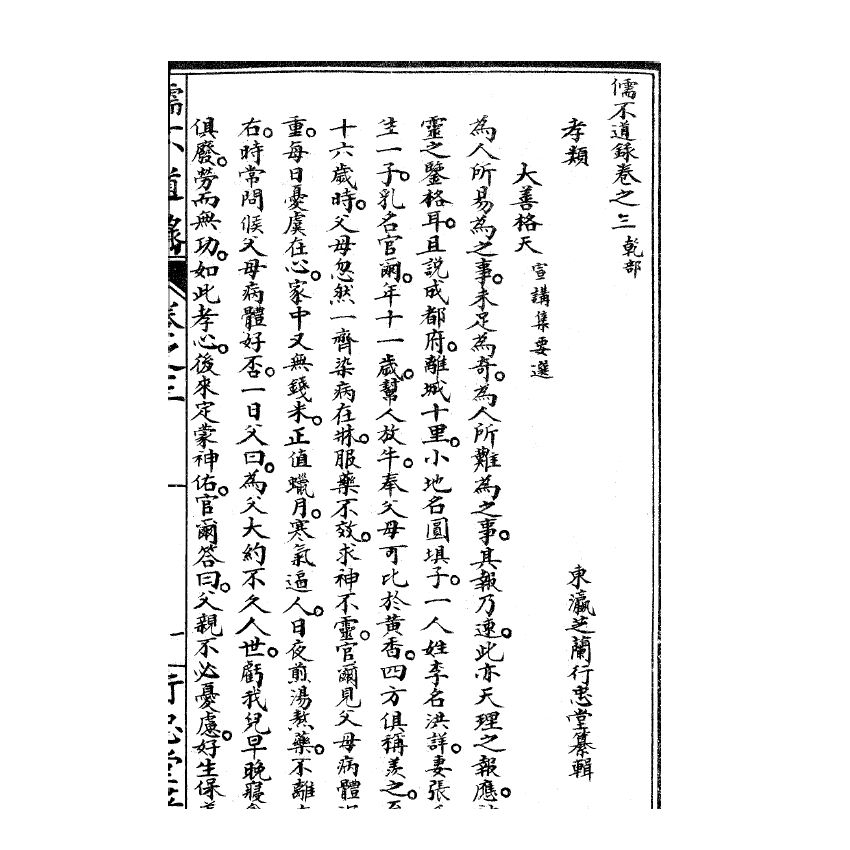 儒不道錄卷之三 乾部
孝類
東瀛芝蘭行忠堂纂輯
大善格天 宣講集要選
為人所易為之事。未足為奇。為人所難為之事。其報乃速。此亦天理之報應。
靈之鑒格耳。且說成都府。離城十里。小地名圓垻子。一人姓李名洪詳。妻張
生一子。乳名官爾。年十一歲。幫人放牛。奉父母可比於黃香。四方俱稱羨之。至
十六歲時。父母忽然一齊染病在牀。服藥不效。求神不靈。官爾見父母病體
重。每日憂虞在心。家中又無錢米。正值蠟月。寒氣逼人。日夜煎湯熬藥。不離
右。時常問候父母病體好否。一日父曰。為父大約不久人世。虧我兒早晚寢
俱廢。勞而無功。如此孝心。後來定蒙神佑。官爾答曰。父親不必憂慮。好生保